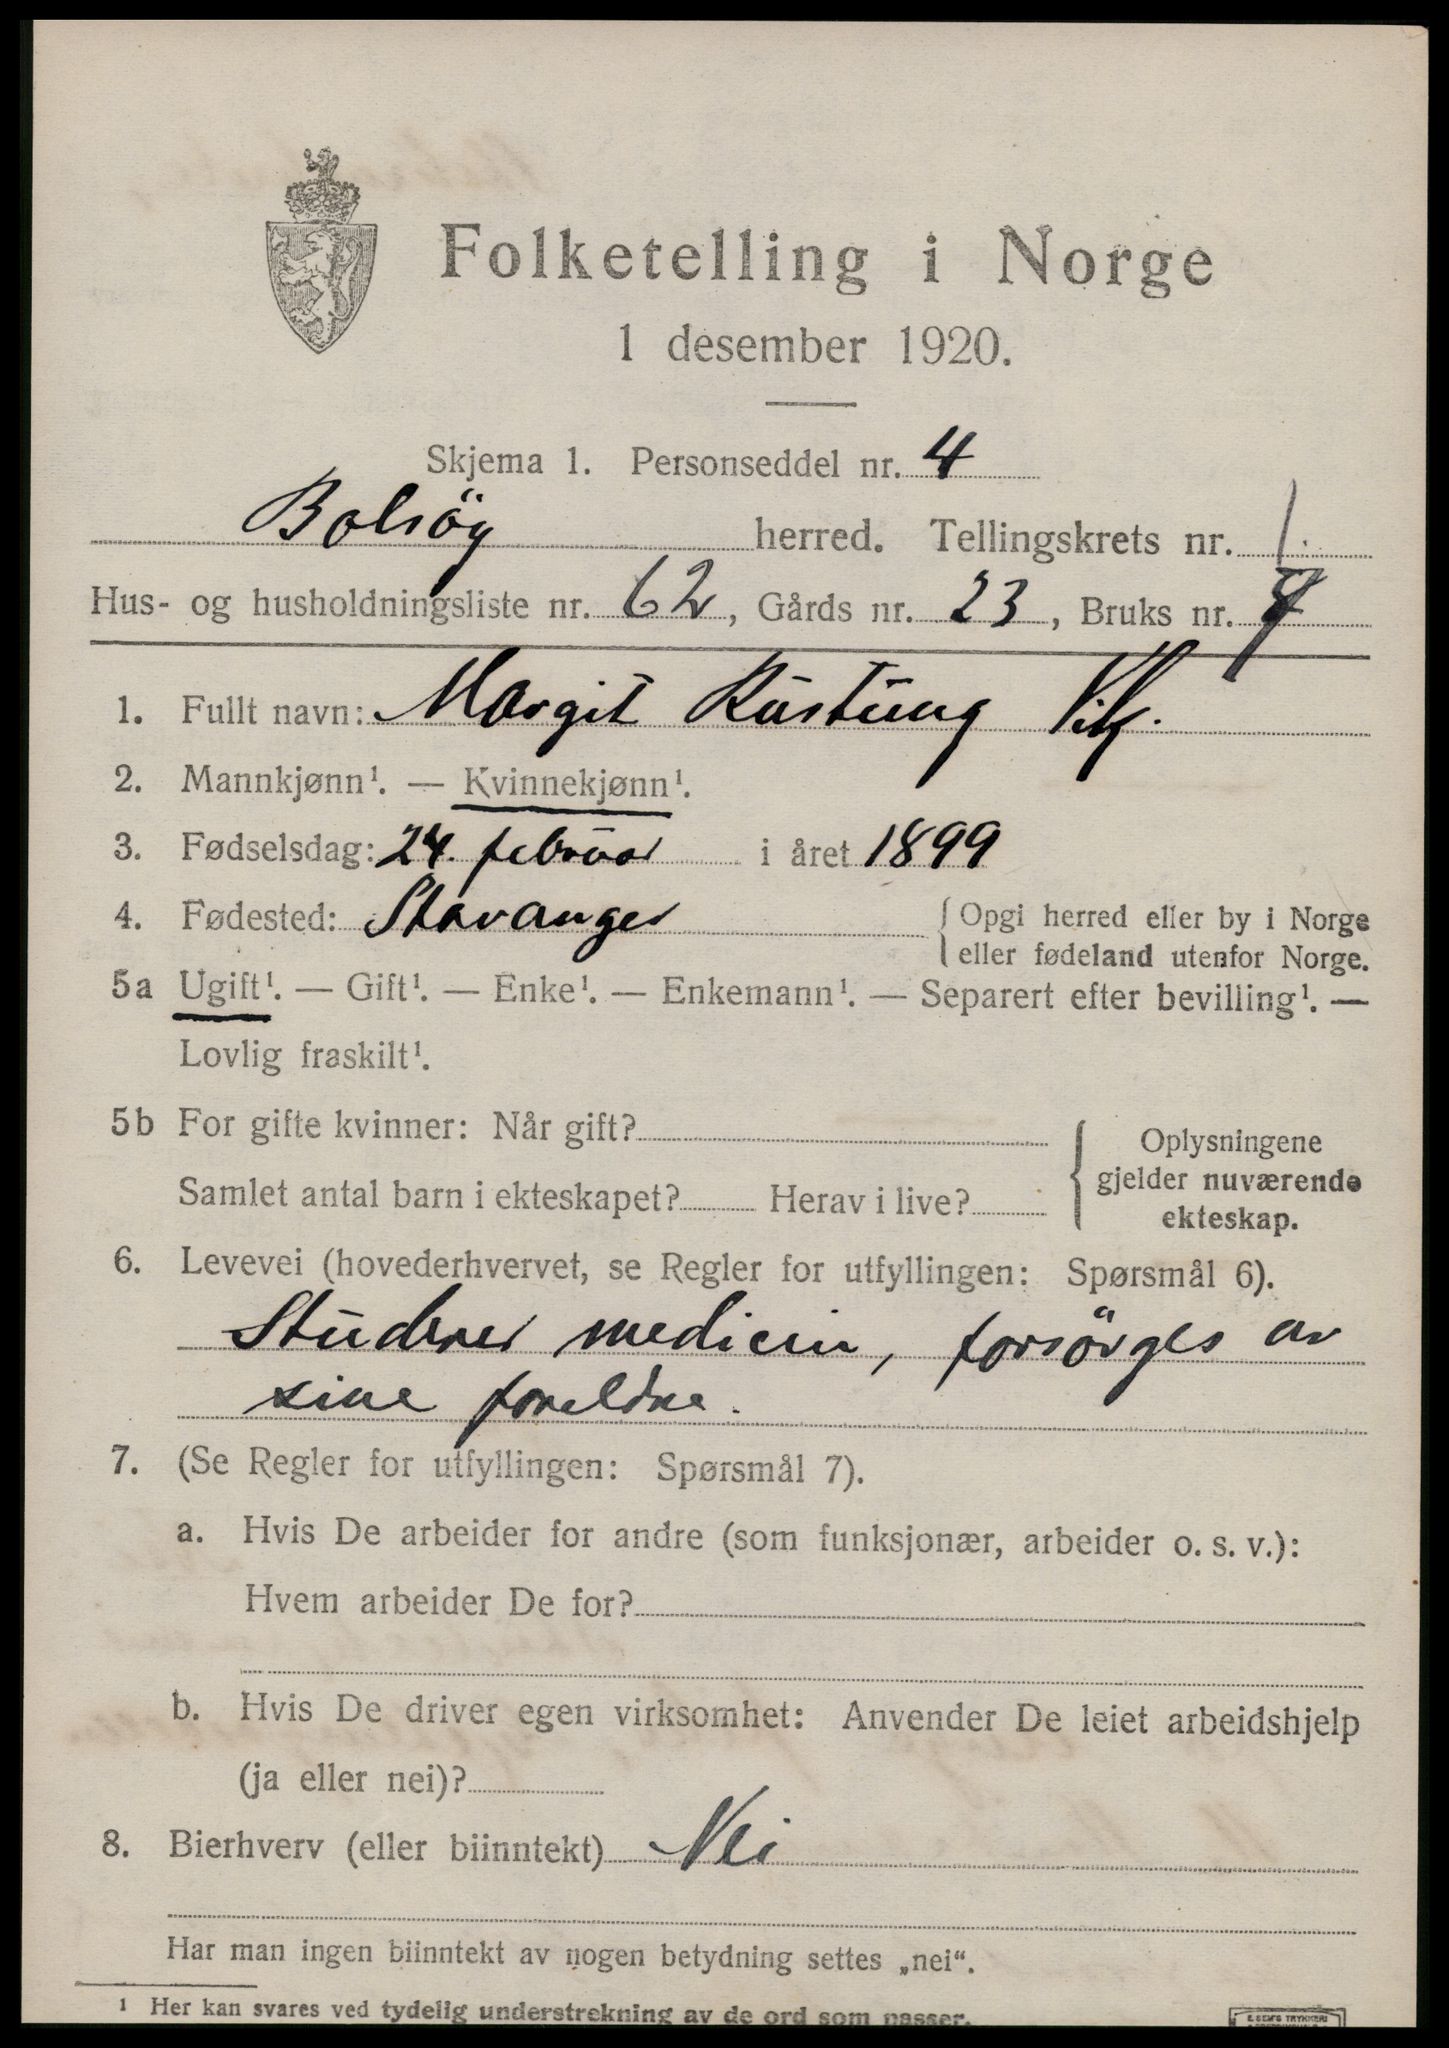 Folketelling i Norge
1 desember 1920.
Skjema 1. Personseddel nr. 4
Bolsöy herred. Tellingskrets nr. 1.
Hus- og husholdningsliste nr. 62, Gårds nr. 23, Bruks nr.
1. Fullt navn: Margit Rüstüng Vik.
2. Mannkjønn¹. — Kvinnekjønn¹.
3. Fødselsdag: 24. februar i året 1899
4. Fødested: Stavanger { Opgi herred eller by i Norge
eller fødeland utenfor Norge.
5a Ugift¹. — Gift¹. — Enke¹. — Enkemann¹. — Separert efter bevilling¹. —
Lovlig fraskilt¹.
5b For gifte kvinner: Når gift? { Oplysningene
gjelder nuværende
Samlet antal barn i ekteskapet? Herav i live? ekteskap.
6. Levevei (hovederhvervet, se Regler for utfyllingen: Spørsmål 6).
Studerer medicin, forsörges av
sine foreldre.
7. (Se Regler for utfyllingen: Spørsmål 7).
a. Hvis De arbeider for andre (som funksjonær, arbeider o. s. v.):
Hvem arbeider De for?
b. Hvis De driver egen virksomhet: Anvender De leiet arbeidshjelp
(ja eller nei)?
8. Bierhverv (eller biinntekt) Nei
Har man ingen biinntekt av nogen betydning settes „nei“.
¹ Her kan svares ved tydelig understrekning av de ord som passer.
E. SEM'S TRYKKERI